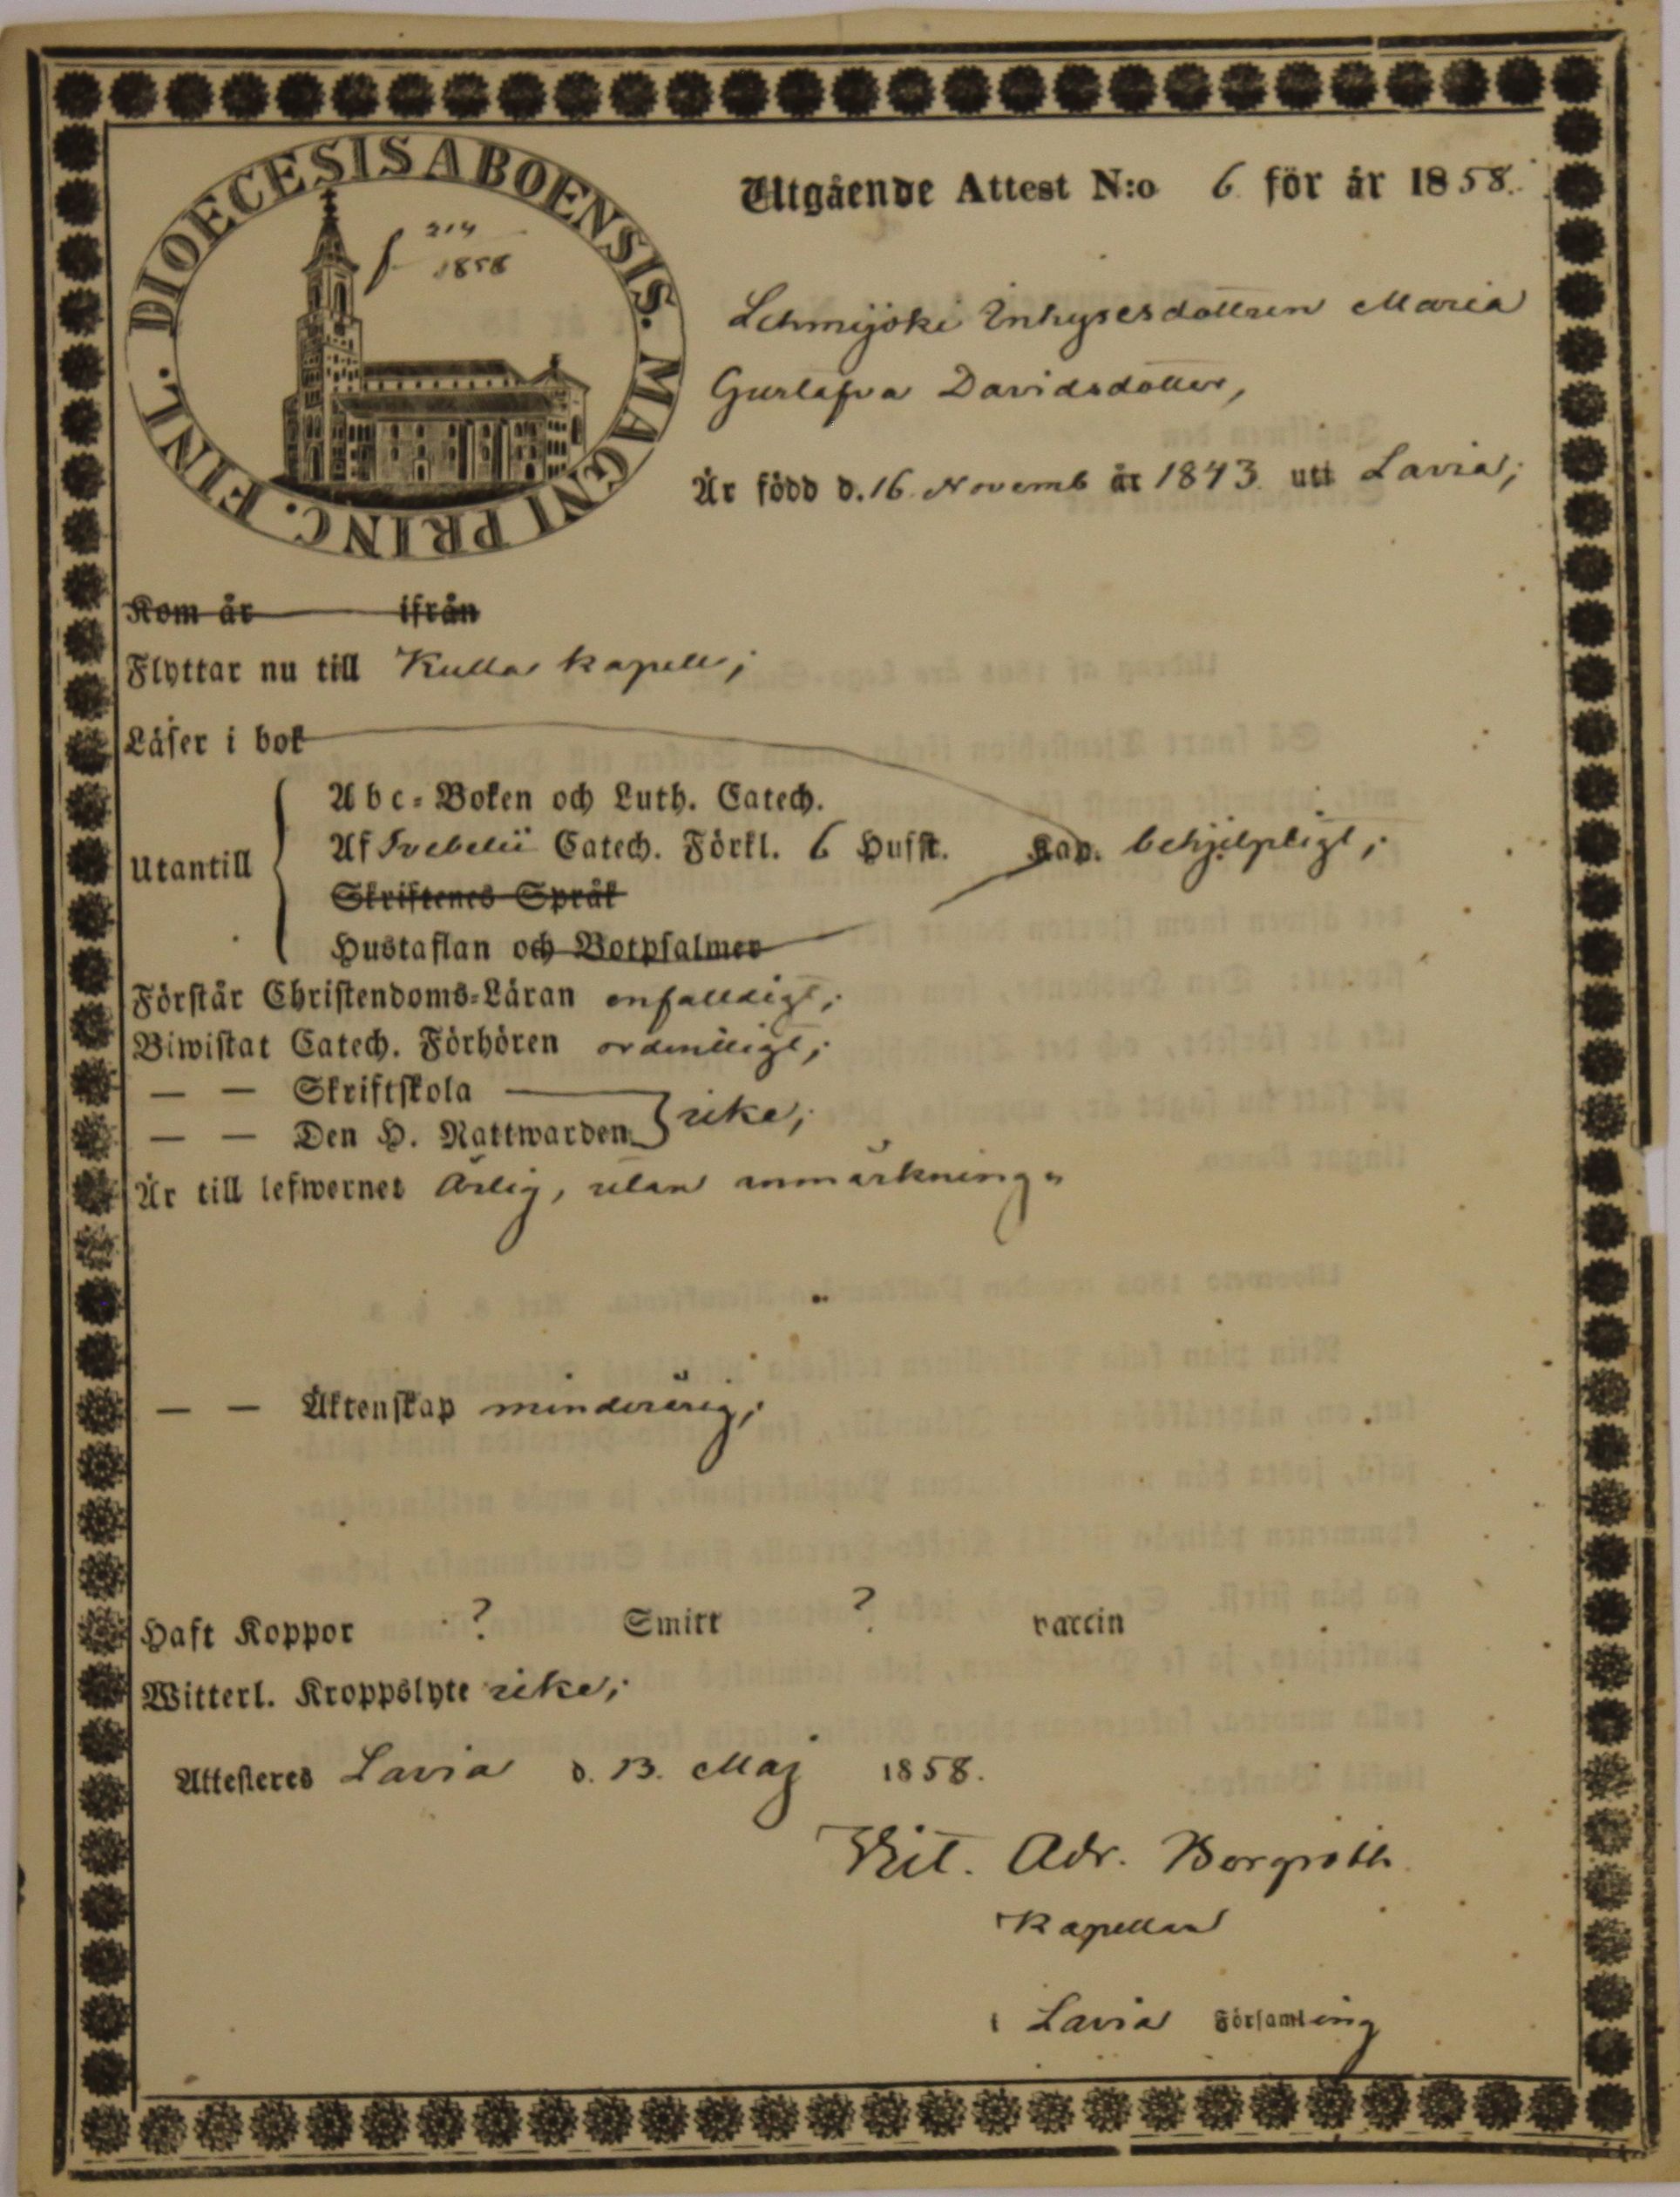 DIOECESIS ABOENSIS. MAGNI PRINC. FINL.
f 214
1858
Utgående Attest N:o 6 för år 1858.
Lehmijoki Inhysesdottren Maria
Gustafva Davidsdotter,
Är född d. 16 Novemb år 1843 uti Lavia;
Kom år ifrån
Flyttar nu till Kulla kapell;
Läser i bok
Utantill
Abc-Boken och Luth. Catech.
Af Svebelii Catech. Förkl. 6 Hufst. Kap. behjelpligt;
Skriftenes Språk
Hustaflan och Botpsalmer
Förstår Christendoms-Läran enfaldigt;
Biwistat Catech. Förhören ordentligt;
— — Skriftskola
— — Den H. Nattwarden } icke;
Är till lefwernet Ärlig, utan anmärkning.
— — Äktenskap minderårig;
Haft Koppor ? Smitt ? vaccin
Witterl. Kroppslyte icke;
Attesteres Lavia d. 13. Maj 1858.
Adr. Borgroth
Kapellan
i Lavia Församling